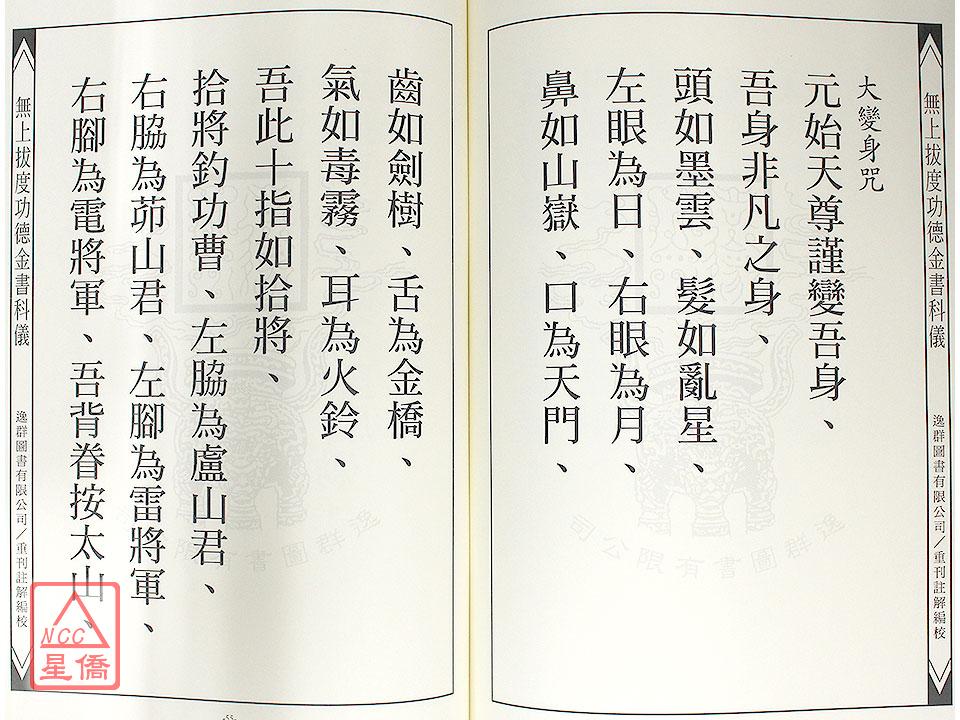 無上拔度功德金書科儀
逸群圖書有限公司／重刊註解編校
大變身咒
元始天尊謹變吾身、
吾身非凡之身、
頭如墨雲、髮如亂星、
左眼為日、右眼為月、
鼻如山嶽、口為天門、
齒如劍樹、舌為金橋、
氣如毒霧、耳為火鈴、
吾此十指如拾將、
拾將釣功曹、左脇為盧山君、
右脇為茆山君、左腳為雷將軍、
右腳為電將軍、吾背眷按太山、
無上拔度功德金書科儀
逸群圖書有限公司／重刊註解編校
逸群圖書有限公司
逸群圖書有限公司
-55-
NCC
星僑